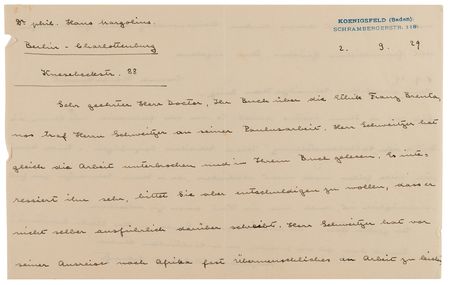 Dr phil. Hans Margolius.
KOENIGSFELD (Baden).
SCHRAMBERGERSTR. 118
Berlin - Charlottenburg
2. 9. 29
Knesebeckstr. 88
Sehr geehrter Herr Doctor, Ihr Buch über die Ethik Franz Brenta,
nos traf Herrn Schweitzer an seiner Paulusarbeit. Herr Schweitzer hat
gleich die Arbeit unterbrochen und in Ihrem Buch gelesen. Es inte-
ressiert ihn sehr, bittet Sie aber entschuldigen zu wollen, dass er
nicht selber ausführlich darüber schreibt. Herr Schweitzer hat vor
seiner Ausreise nach Afrika fast Übermenschliches an Arbeit zu